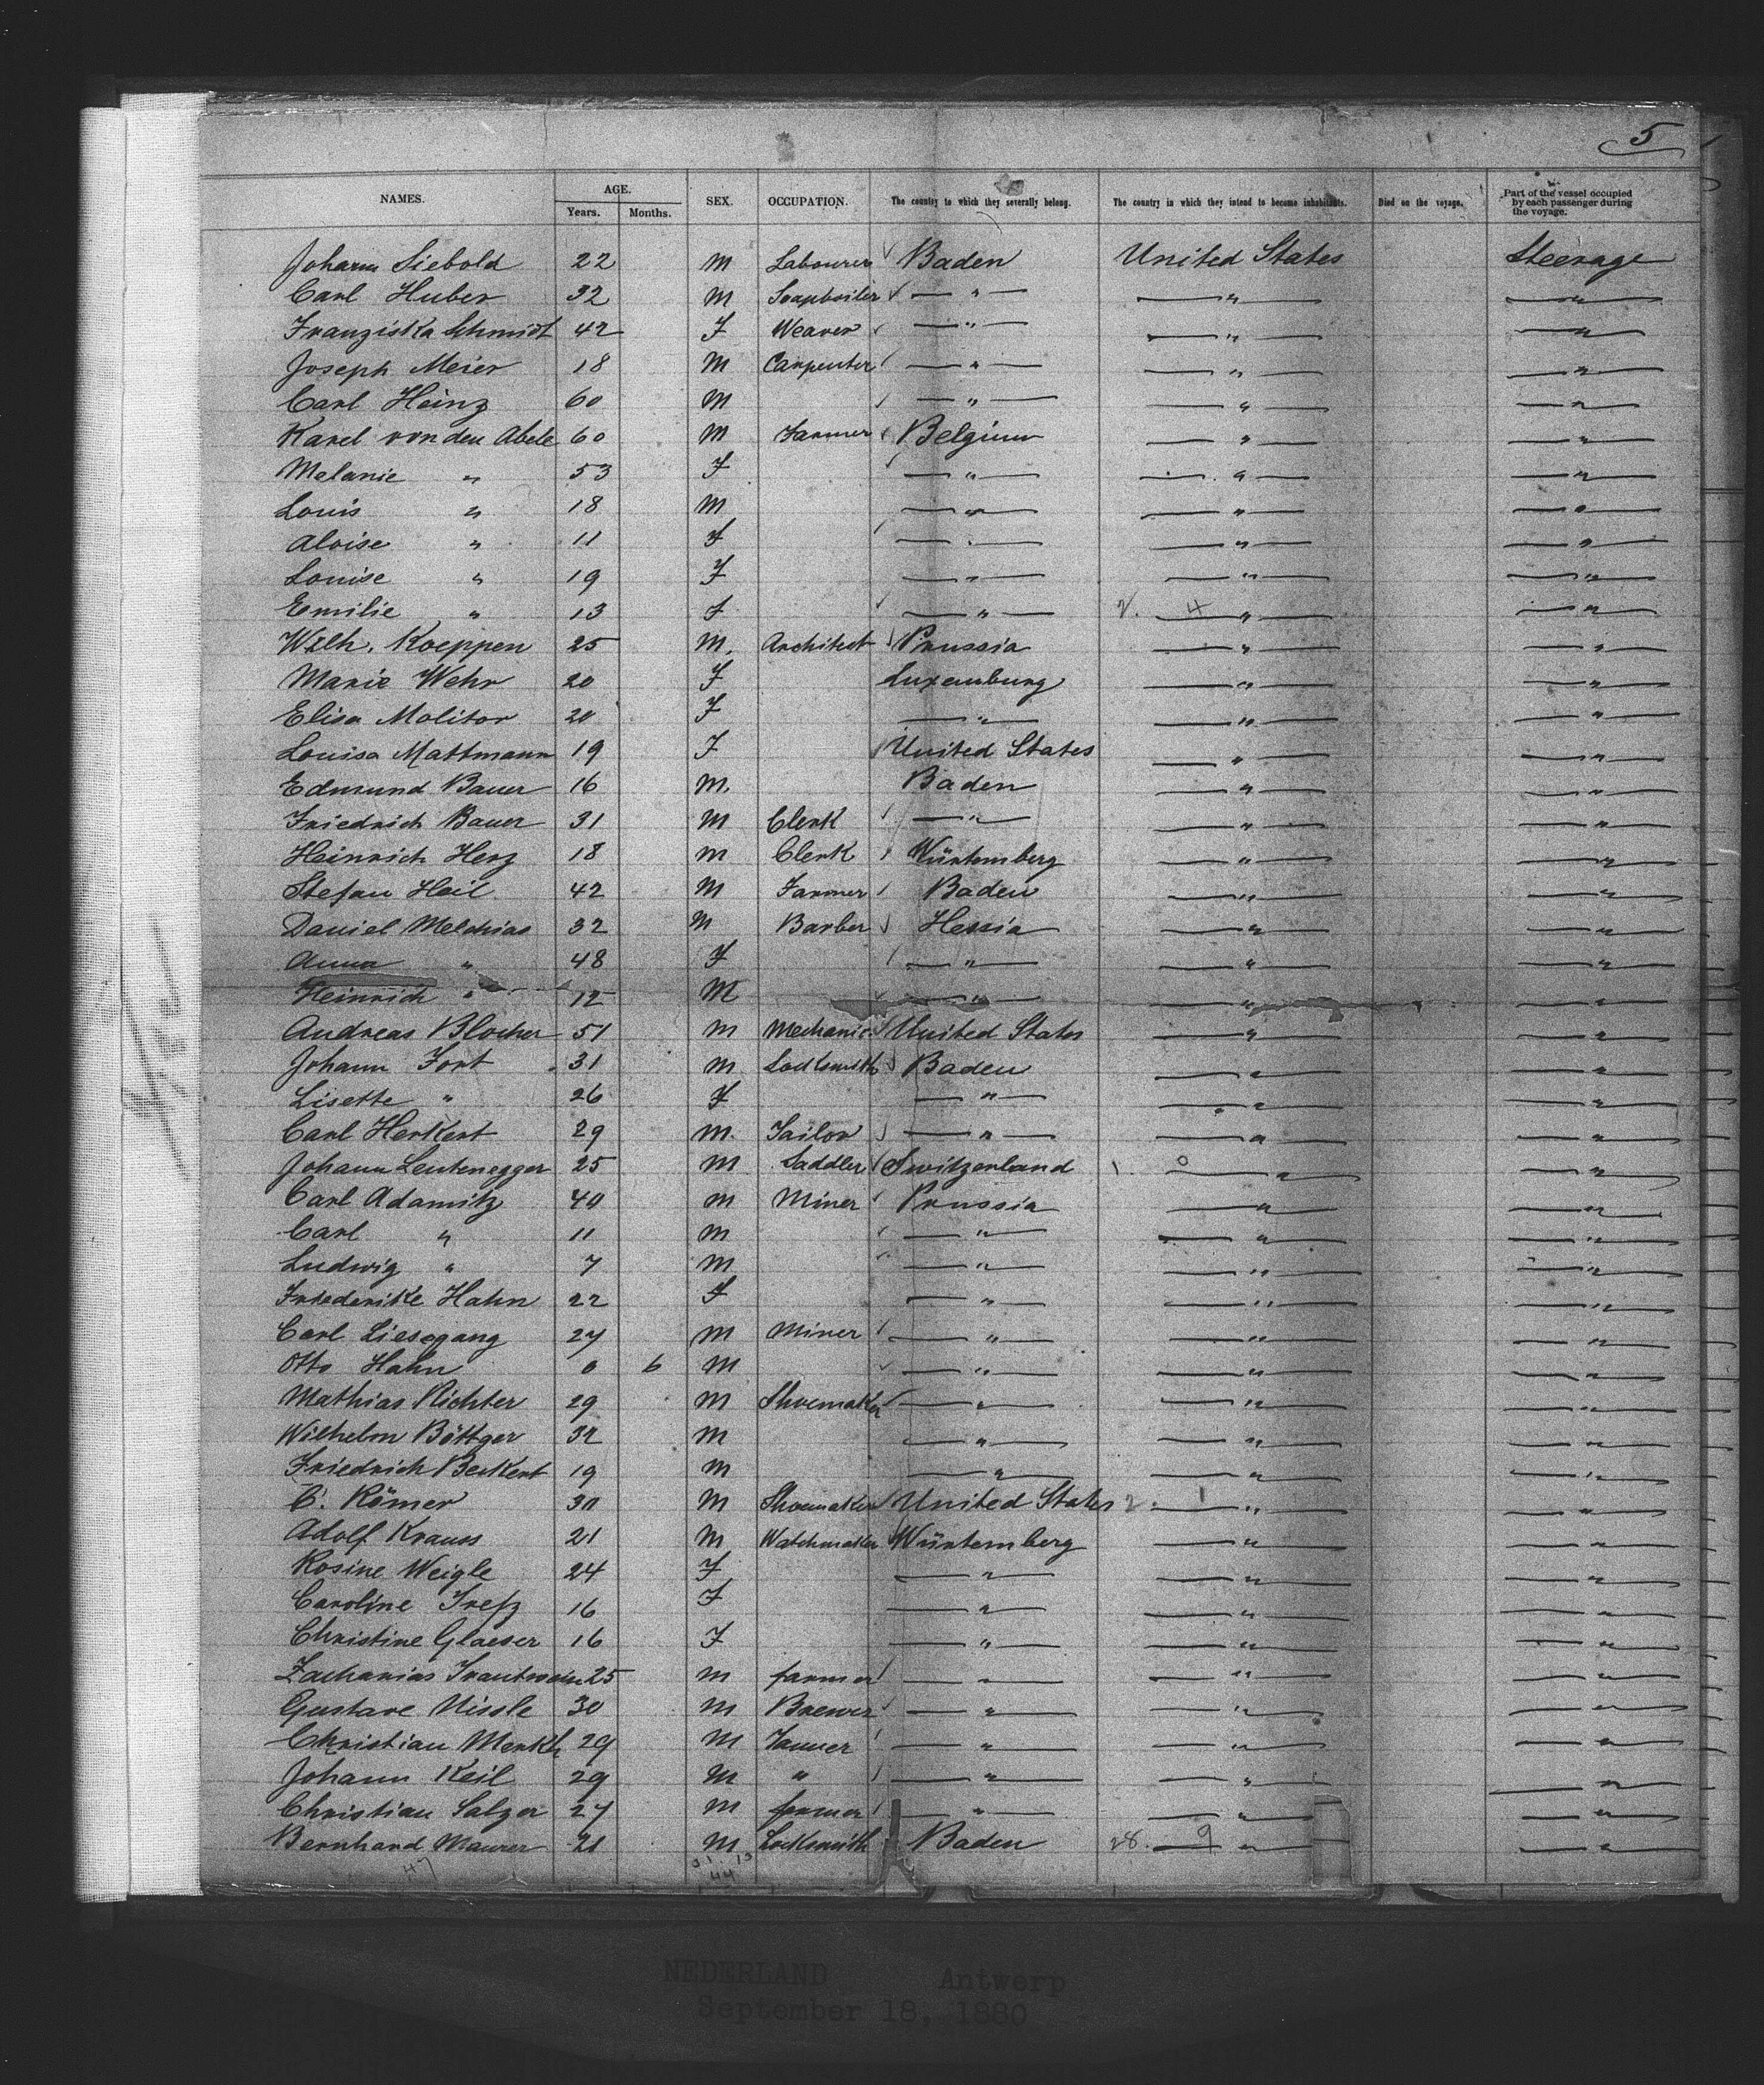 5
NAMES. AGE. Years. Months. SEX. OCCUPATION. The country to which they severally belong. The country in which they intend to become inhabitants. Died on the voyage. Part of the vessel occupied by each passenger during the voyage.
Johann Siebold 22 M Labourer Baden United States Steerage
Carl Huber 32 M Soapboiler — " — — " — — " —
Franziska Schmidt 42 F Weaver — " — — " — — " —
Joseph Meier 18 M Carpenter — " — — " — — " —
Carl Heinz 60 M — " — — " — — " —
Karel von den Abele 60 M Farmer Belgium — " — — " —
Melanie " 53 F — " — — " — — " —
Louis " 18 M — " — — " — — " —
Aloise " 11 F — " — — " — — " —
Louise " 19 F — " — — " — — " —
Emilie " 13 F — " — 2. 4 — " — — " —
Wilh. Koeppen 25 M. Architect Prussia — " — — " —
Marie Wehr 20 F Luxemburg — " — — " —
Elisa Molitor 20 F — " — — " — — " —
Louisa Mattmann 19 F United States — " — — " —
Edmund Bauer 16 M. Baden — " — — " —
Friedrich Bauer 31 M Clerk — " — — " — — " —
Heinrich Herz 18 M Clerk Würtemberg — " — — " —
Stefan Heil 42 M Farmer Baden — " — — " —
Daniel Melchias 32 M Barber Hessia — " — — " —
Anna " 48 F — " — — " — — " —
Heinrich " 12 M — " — — " — — " —
Andreas Blocher 51 M Mechanic United States — " — — " —
Johann Fort 31 M Locksmith Baden — " — — " —
Lisette " 26 F — " — — " — — " —
Carl Herkert 29 M. Tailor — " — — " — — " —
Johann Leutenegger 25 M Saddler Switzerland — " — — " —
Carl Adamitz 40 M Miner Prussia — " — — " —
Carl " 11 M — " — — " — — " —
Ludwig " 7 M — " — — " — — " —
Friederike Hahn 22 F — " — — " — — " —
Carl Liesegang 27 M Miner — " — — " — — " —
Otto Hahn 0 6 M — " — — " — — " —
Mathias Richter 29 M Shoemaker — " — — " — — " —
Wilhelm Böttger 32 M — " — — " — — " —
Friedrich Beckert 19 M — " — — " — — " —
C. Römer M Shoemaker United States 2. 1 — " — — " —
Adolf Krauss 21 M Watchmaker Würtemberg — " — — " —
Rosine Weigle 24 F — " — — " — — " —
Caroline Trefz 16 F — " — — " — — " —
Christine Glaeser 16 F — " — — " — — " —
Zacharias Trautwein 25 M farmer — " — — " — — " —
Gustave Nissle 30 M Brewer — " — — " — — " —
Christian Merkle 29 M Tanner — " — — " — — " —
Johann Keil 29 M " — " — — " — — " —
Christian Salzer 27 M farmer — " — — " — — " —
Bernhard Maurer 21 M Locksmith Baden 28. 9 — " — — " —
47 31. 13
44
NEDERLAND Antwerp
September 18, 1880